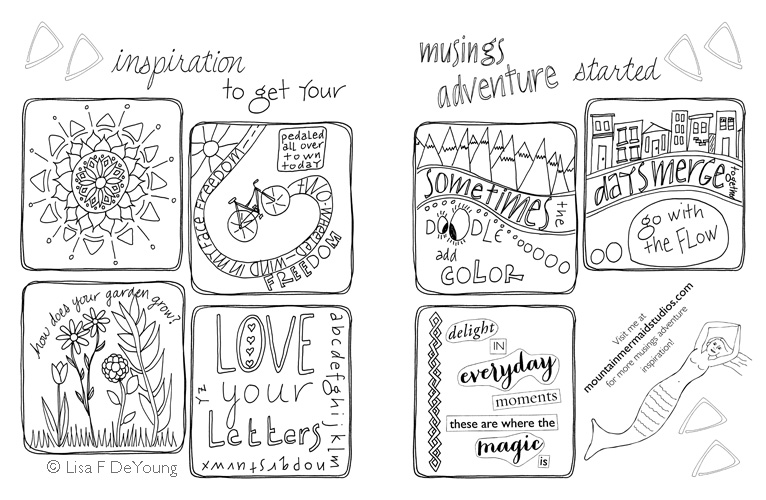 inspiration
to get your
musings
adventure started
pedaled
all over
town
today
FREEDOM — WIND IN MY FACE FREEDOM — TWO-WHEELED
SOMETIMES
the
DOODLE
add
COLOR
days MERGE
together
go with
the FLOW
how does your garden grow?
LOVE
your
Letters
abcdefghijklm
nopqrstuvwx
yz
delight
IN
everyday
moments
these are where the
magic
is
Visit me at
mountainmermaidstudios.com
for more musings adventure
inspiration!
© Lisa F DeYoung